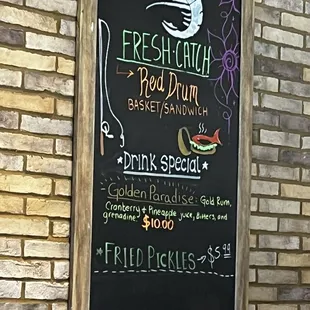 FRESH CATCH
Red Drum
BASKET/SANDWICH
*DRINK SPECIAL*
Golden Paradise: Gold Rum,
Cranberry + Pineapple juice, Bitters, and
grenadine $10.00
*FRIED PICKLES → $5.99